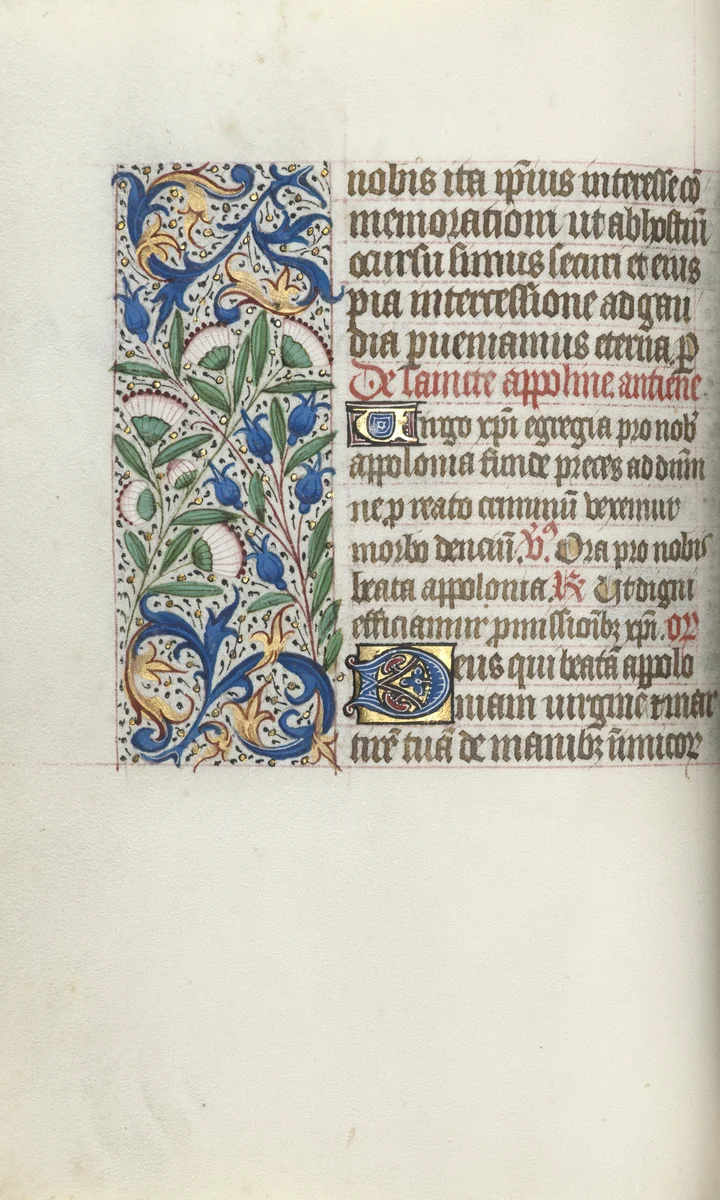 nobis ita ip̃ius interesse cõ
memorationi ut ab hostiũ
ocursu simus securi et eius
pia intercessione ad gau
dia ꝑueniamus eterna. P̲
De saincte appoline. antiene
Uirgo xp̃i egregia pro nob̾
appolonia funde preces ad dñm
ne ꝓ reatu criminũ vexemur
morbo denciũ. V̾ª Ora pro nobis
beata appolonia. ℟ Ut digni
efficiamur ꝓmissioĩbꝫ xp̃i. OR̾
Deus qui beatã appolo
niam uirginẽ ⁊ mar
tirẽ tuã de manibꝫ ĩnimicoꝝ